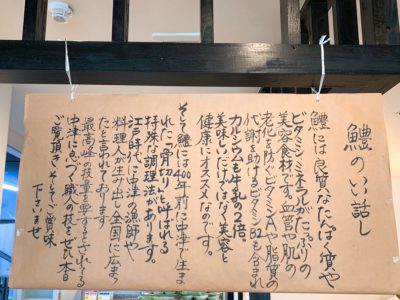 鱧のいい話し
鱧には良質なたんぱく質や
ビタミン、ミネラルがたっぷりの
美容食材です。血管や肌の
老化を防ぐビタミンAや脂質の
代謝を助けるビタミンB2も含まれ
カルシウムも牛乳の2倍。
美味しいだけではなく美容と
健康にオススメなのです。
そして鱧には400年前に中津で生ま
れた「骨切り」と呼ばれる
特殊な調理法があります。
江戸時代に中津の漁師や
料理人が生み出し全国に広まっ
たと言われております。
最高峰の技量を要するとされてる
中津に息づく職人の技をぜひ本日
ご覧頂き、そしてご賞味
下さいませ。